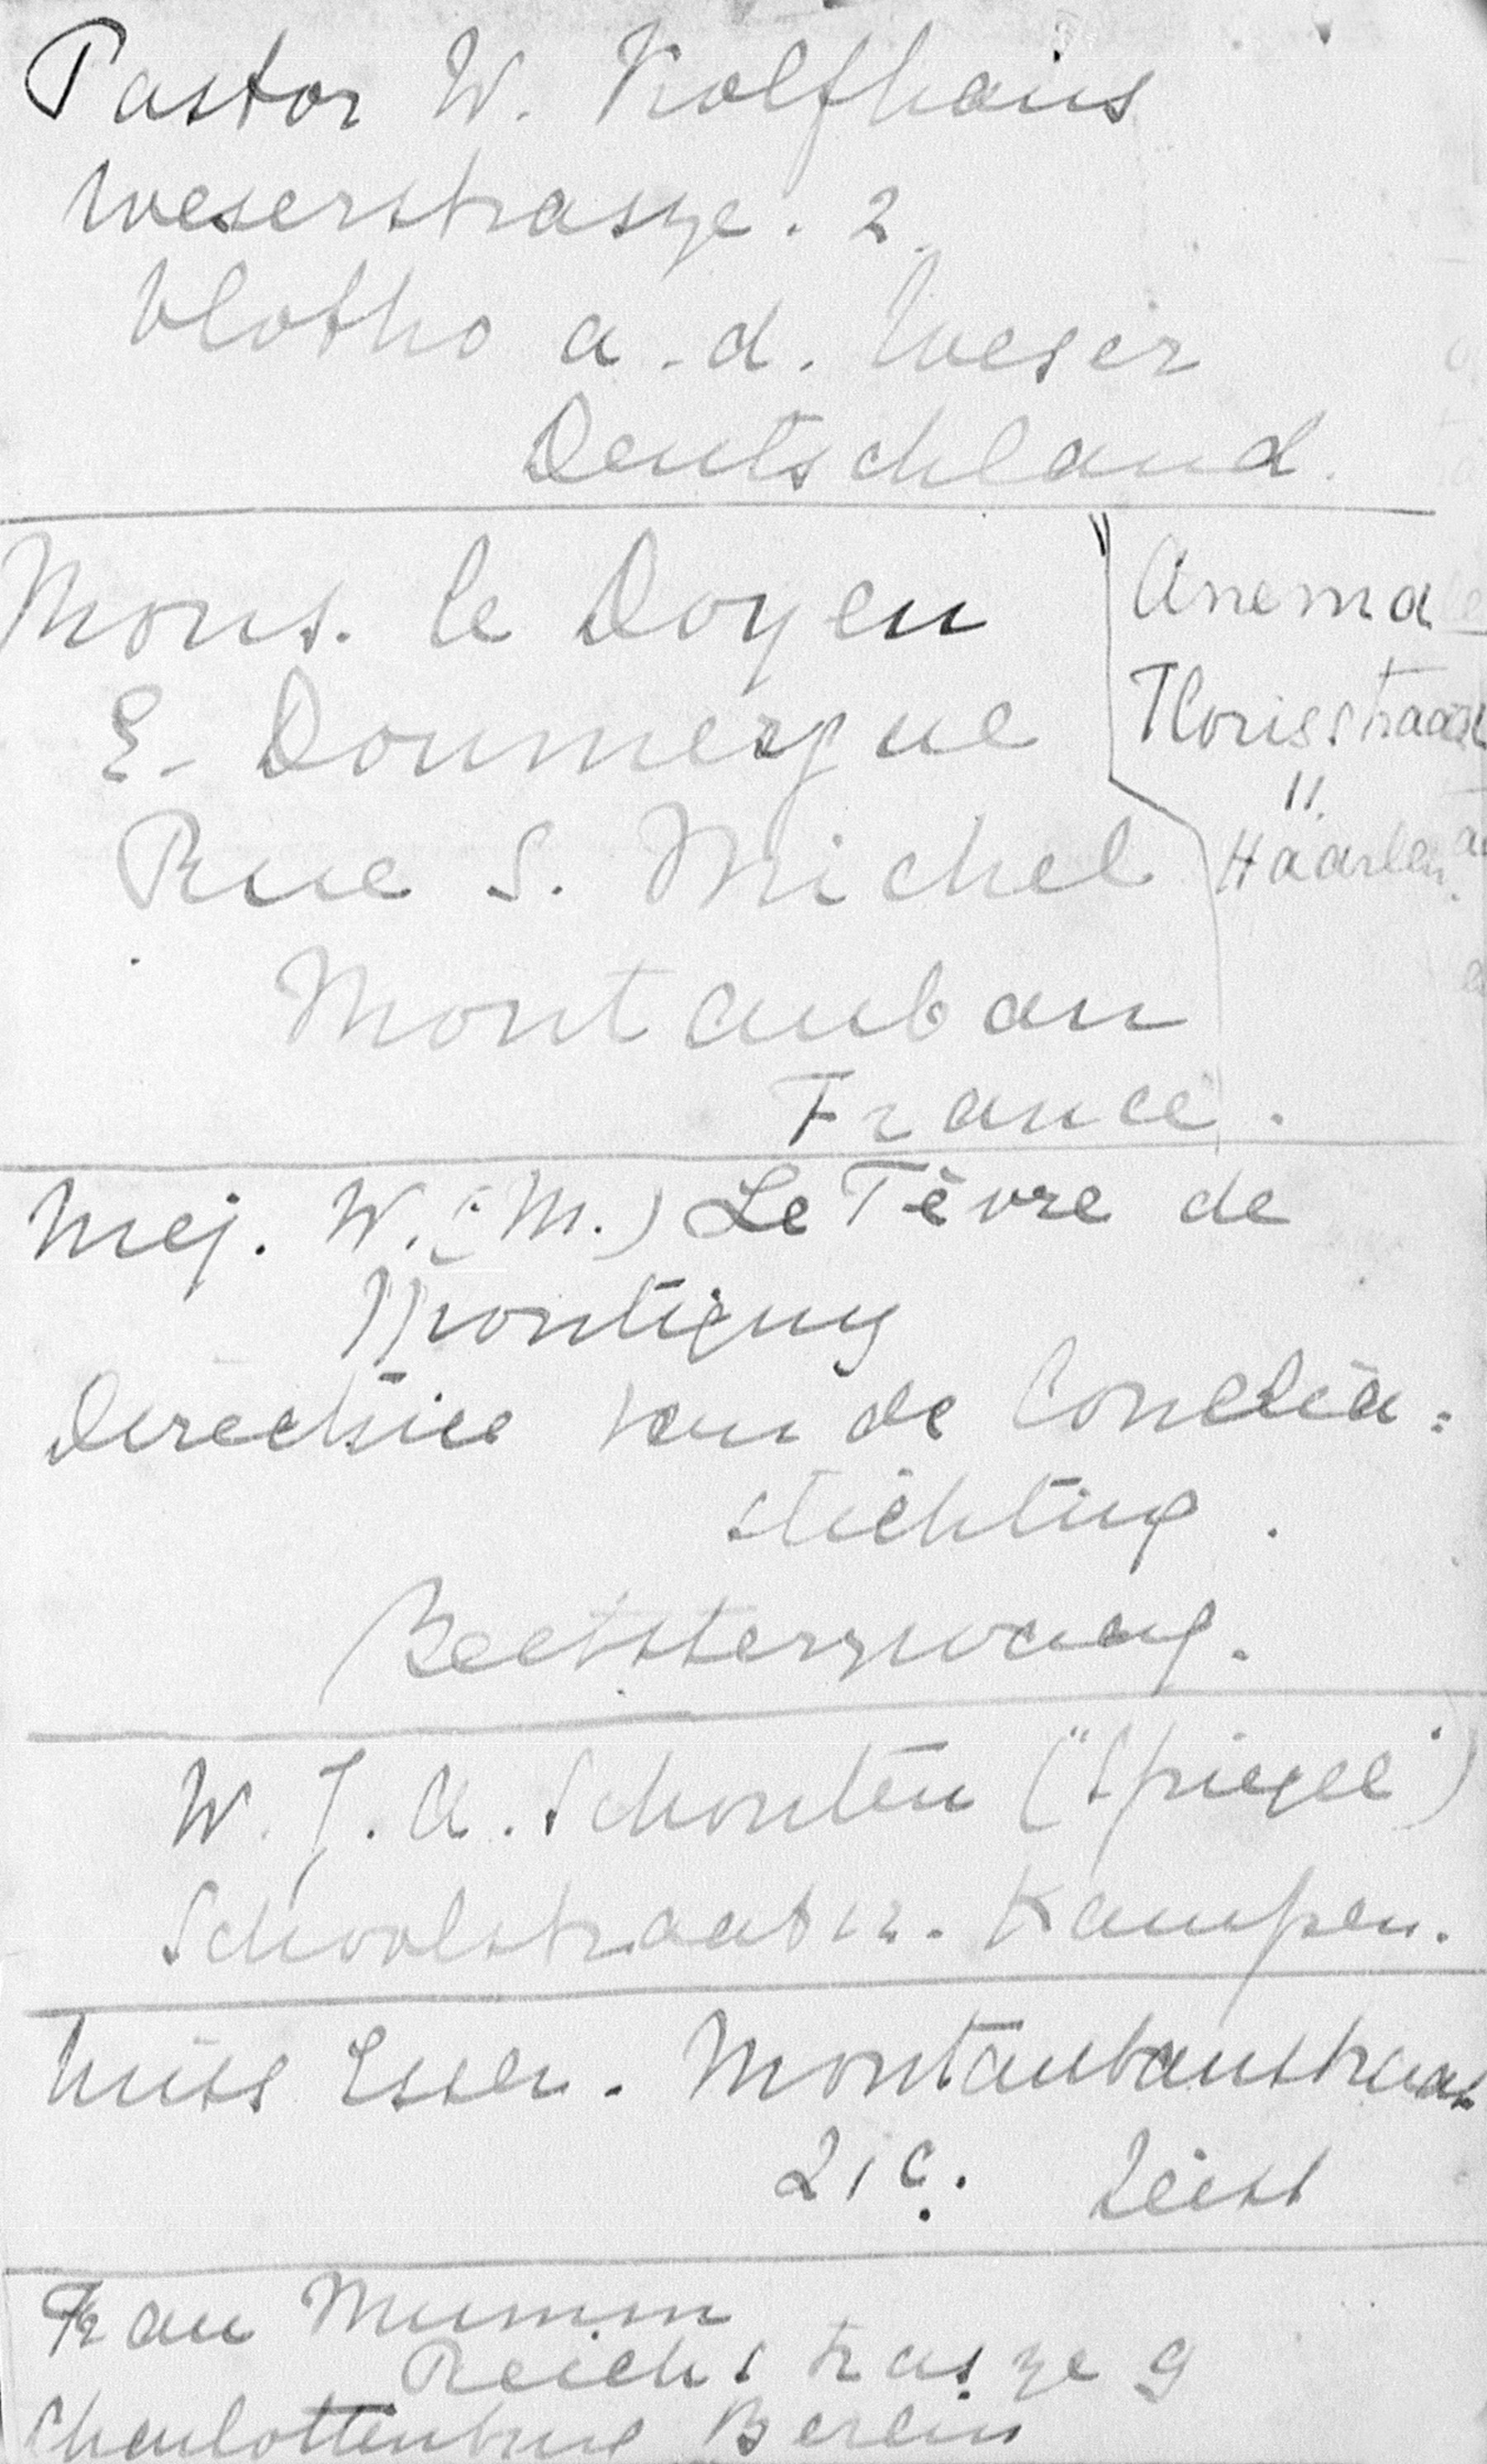 Pastor W. Kolfhaus
Weserstrasze. 2.
Vlotho a. d. Weser
Deutschland.
Mons. le Doyen
E. Doumergue
Rue S. Michel
Montauban
France.
Anema
Florisstraat
11.
Haarlem.
Mej. W. (M.) Le Fèvre de
Montigny
Directrice van de Cornelia-
stichting.
Beetsterzwaag.
W. J. A. Schouten ("Spiegel")
Schoolstraat 12. Kampen.
Miss Esser. Montaubanstraat
21c. Zeist
Frau Mumm
Reichstrasze 9
Charlottenburg Berlin